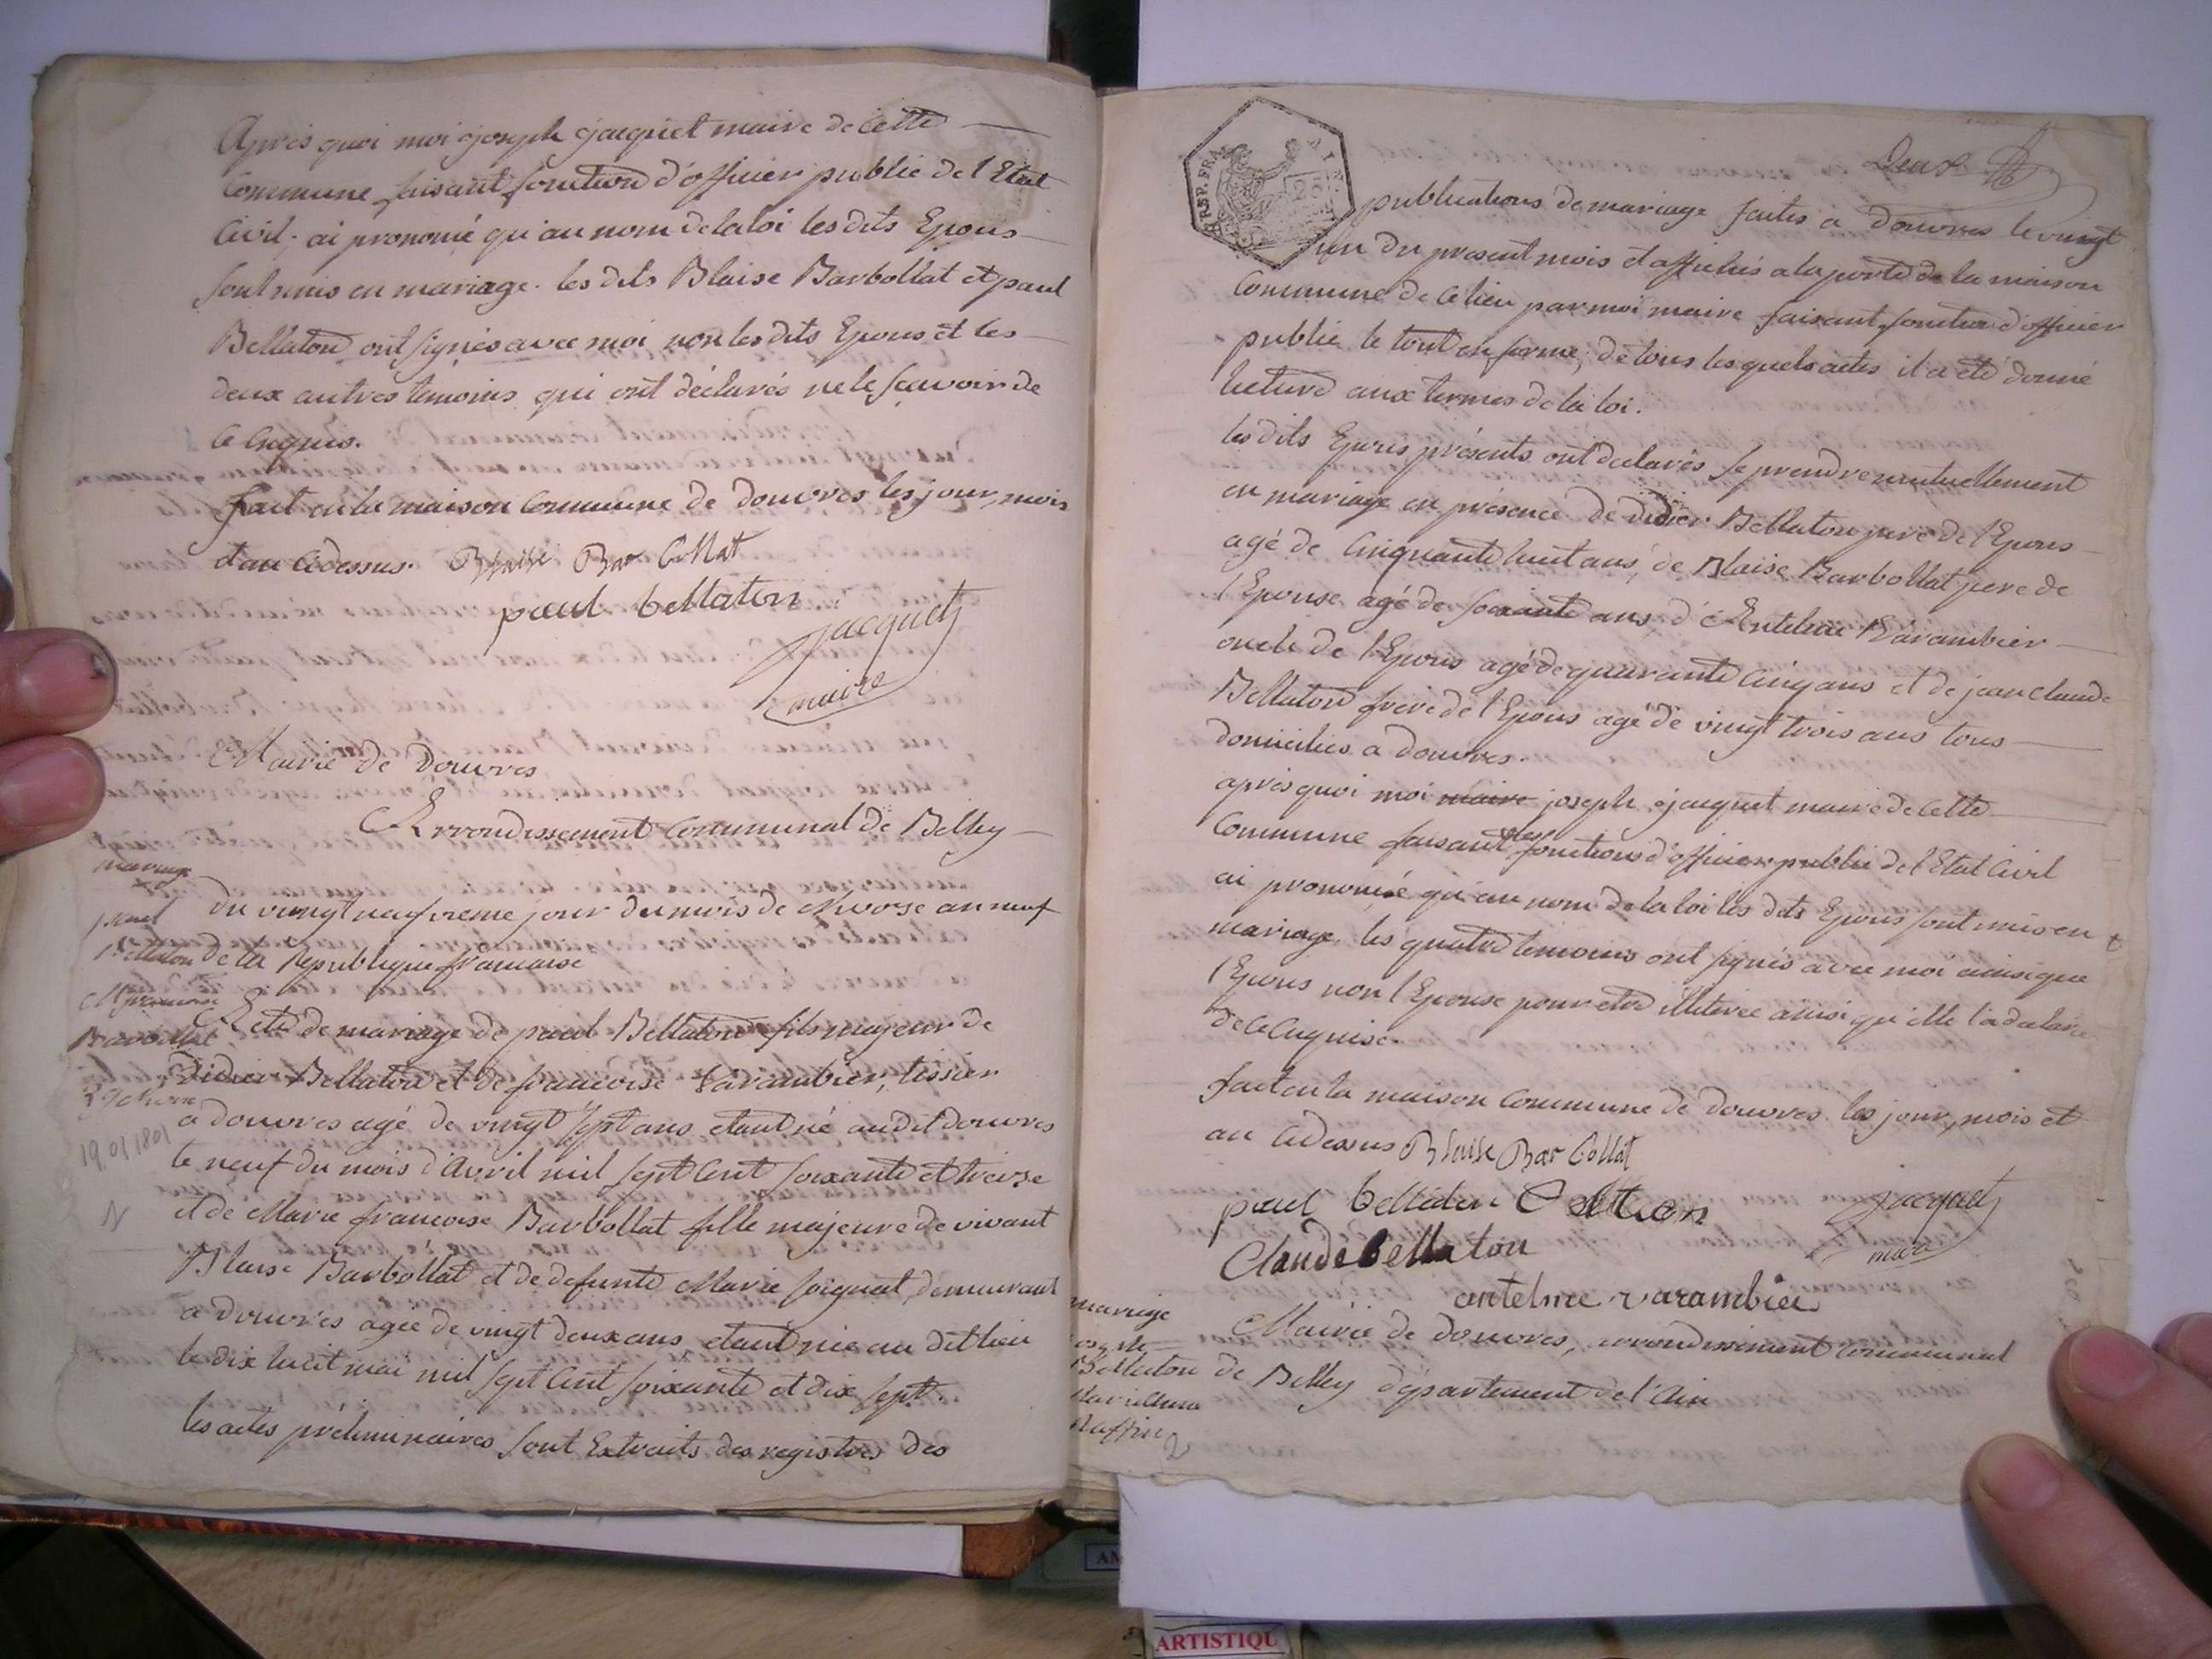 Après quoi moi joseph jacquet maire de cette
Commune faisant fonction d'officier public de l'Etat
Civil; ai prononcé qu'au nom de la loi les dits Epous
sont unis en mariage. les dits Blaise Barbollat et paul
Bellaton ont signés avec moi non les dits Epous et les
deux autres temoins qui ont déclarés ne le scavoir de
ce enquis.
fait en la maison Commune de douvres les jour, mois
et an cidessus. Blaise Bar bollat
paul bellaton
jacquet
maire
Mairie de Douvres
Arrondissement Communal de Belley
mariage
paul
Bellaton
M françoise
Barbollat
29 Nivose
19/01/1801
N
du vingt neufvieme jour du mois de Nivose an neuf
de la Republique francaise
Acte de mariage de paul Bellaton fils majeur de
Didier Bellaton et de francoise Varambier, tissier
a douvres agé de vingt sept ans etant né audit douvres
le neuf du mois d'Avril mil sept Cent soixante et treize
et de Marie francoise Barbollat fille majeure de vivant
Blaise Barbollat et de defunte Marie soignat, demeurant
a douvres agée de vingt deux ans etant née au dit lieu
le dix huit mai mil sept Cent soixante et dix sept.
les actes préliminaires sont Extraits des registres des
Deux
REP. FRA
publications de mariage faites a douvres le vingt
un du present mois et affichés a la porte de la maison
Commune de ce lieu par moi maire faisant fonction d'officier
public le tout en forme; de tous lesquels actes il a été donné
lecture aux termes de la loi.
les dits Epous présents ont declarés se prendre mutuellement
en mariage en présence de didier Bellaton pere de l'Epous
agé de Cinquante huit ans, de Blaise Barbollat pere de
l'Epouse agé de soixante ans, d'Antelme Varambier
oncle de l'Epous agé de quarante Cinq ans et de jean claude
Bellaton frere de l'Epous agé de vingt trois ans tous
domiciliés a douvres.
après quoi moi maire joseph jacquet maire de cette
Commune faisant les fonctions d'officier public de l'Etat Civil
ai prononcé qu'au nom de la loi les dits Epous sont unis en
mariage, les quatre temoins ont signés avec moi ainsi que
l'Epous non l'Epouse pour etre illiterée ainsi qu'elle l'a declaré
de ce enquise.
fait en la maison Commune de douvres les jour, mois et
an cidessus Blaise Bar bollat
paul bellaton
jacquet
maire
Claude bellaton
antelme varambier
mariage
Bellaton
Mairie de douvres, arrondissement communal
de Belley département de l'Ain
ARTISTIQU